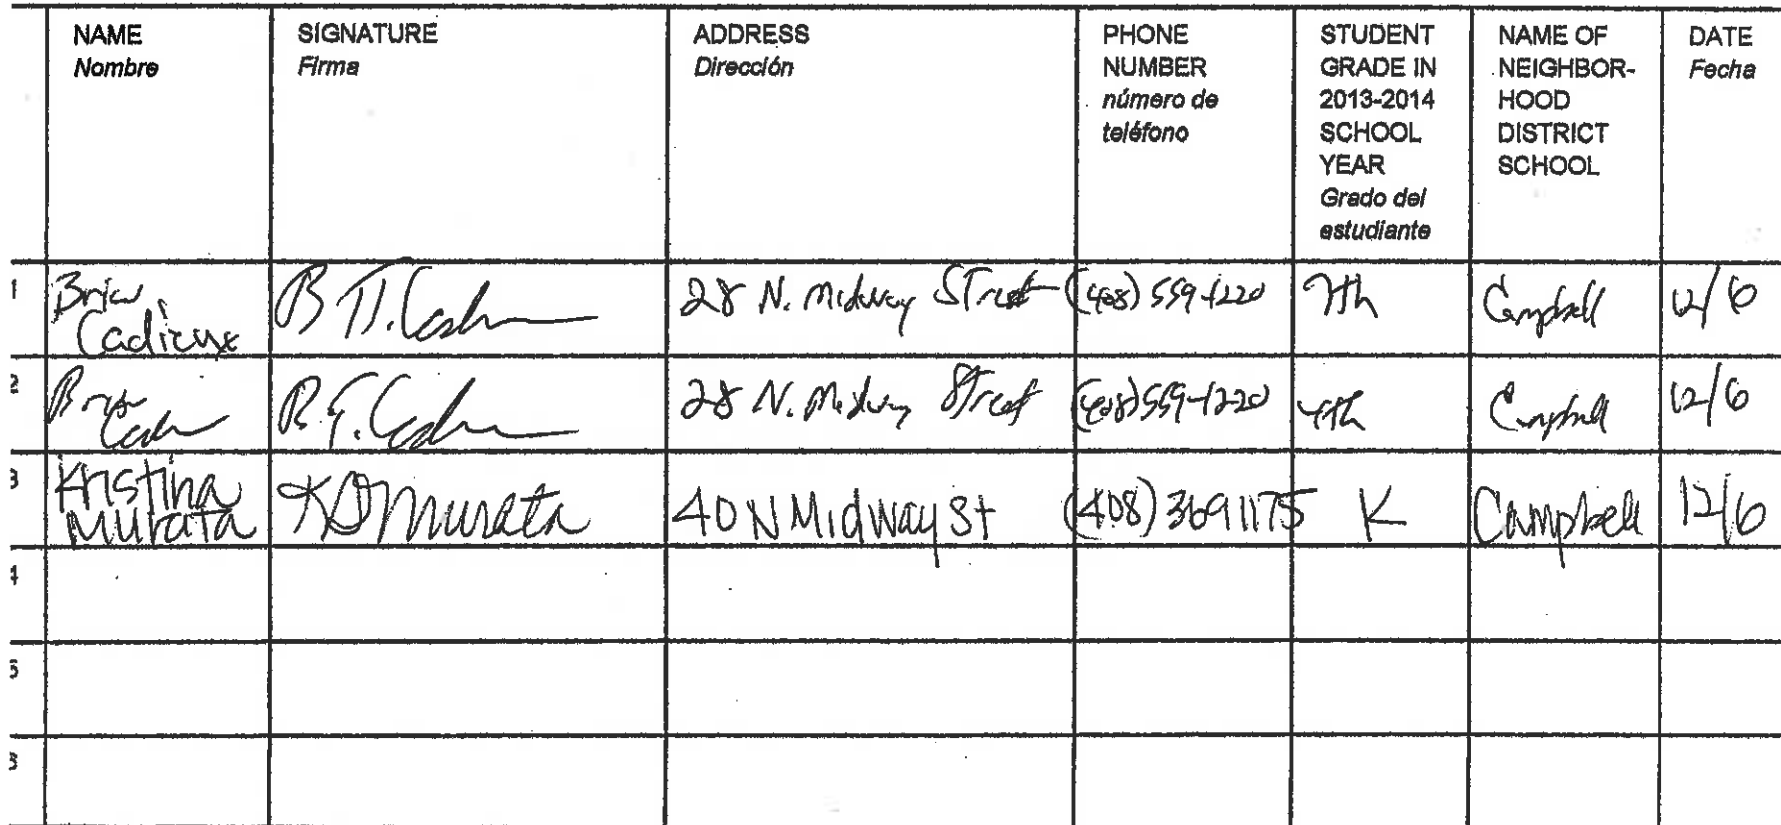 NAME
Nombre
SIGNATURE
Firma
ADDRESS
Dirección
PHONE
NUMBER
número de
teléfono
STUDENT
GRADE IN
2013-2014
SCHOOL
YEAR
Grado del
estudiante
NAME OF
NEIGHBOR-
HOOD
DISTRICT
SCHOOL
DATE
Fecha
1
Brian
Cadieux
28 N. Midway Street
(408) 559-1220
7th
Campbell
12/6
2
28 N. Midway Street
(408) 559-1220
4th
Campbell
12/6
3
Kristina
Murata
KD Murata
40 N Midway St
(408) 3691175
K
Campbell
12/6
4
5